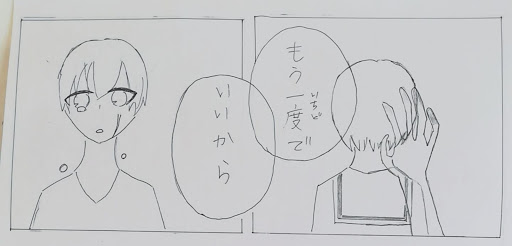 もう一度で
いちど
いいから